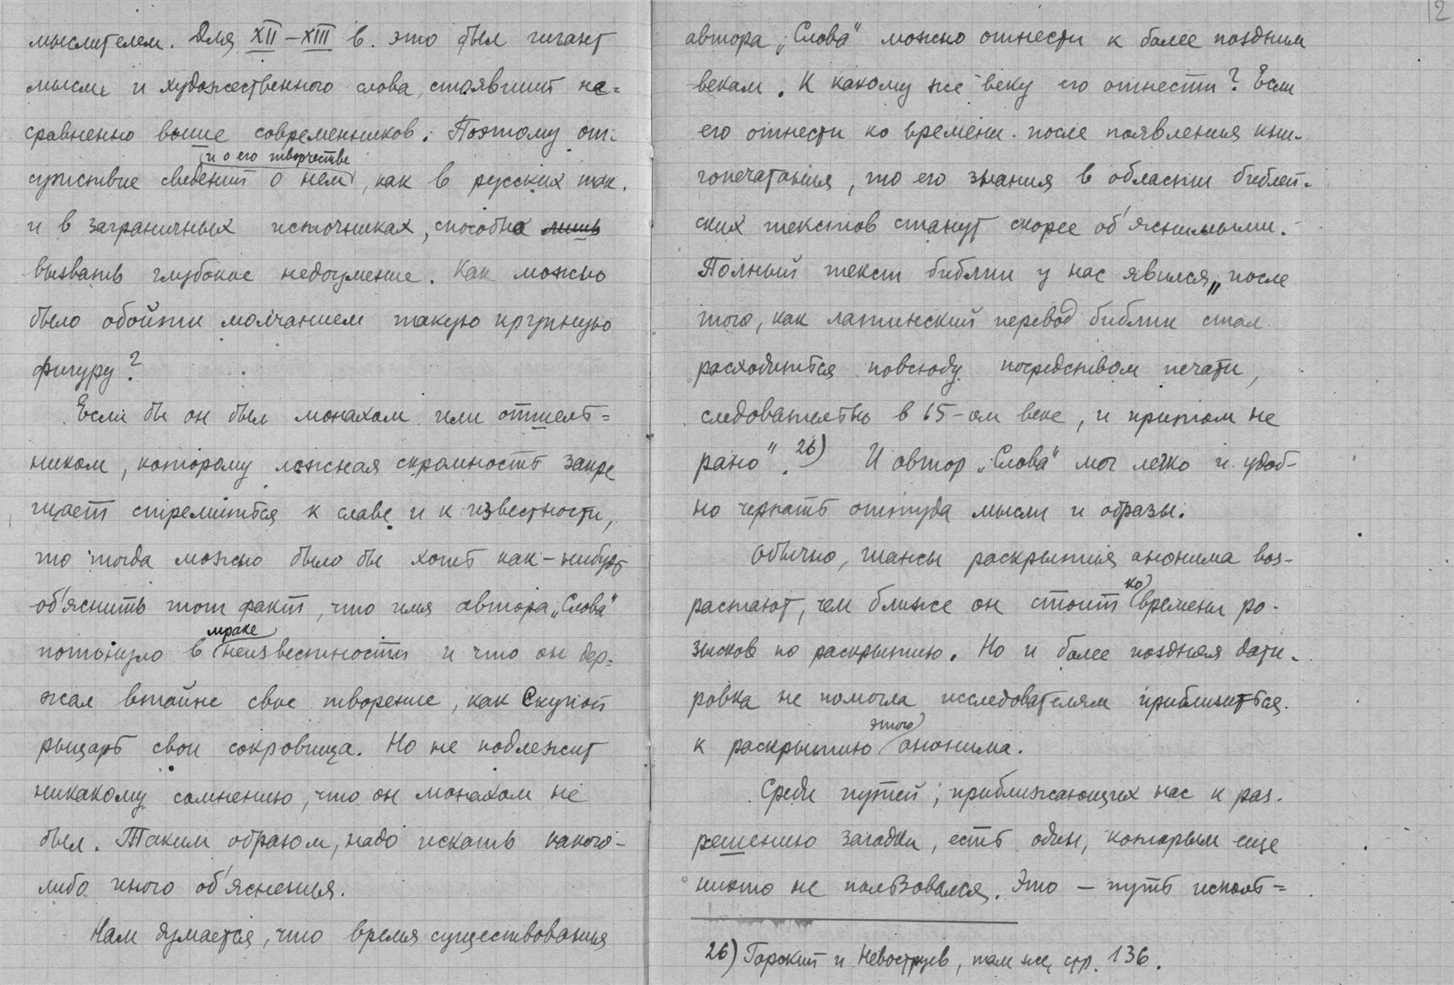 мыслителем. Для XII – XIII в. это был гигант
мысли и художественного слова, стоявший не=
сравненно выше современников. Поэтому от-
и о его творчестве
сутствие сведений о нем, как в русских так
и в заграничных источниках, способно лишь
вызвать глубокое недоумение. Как можно
было обойти молчанием такую крупную
фигуру?
Если бы он был монахом или отшель=
ником, которому ложная скромность запре
щает стремиться к славе и к известности,
то тогда можно было бы хоть как-нибудь
об'яснить тот факт, что имя автора „Слова"
мраке
потонуло в неизвестности и что он дер=
жал втайне свое творение, как Скупой
рыцарь свои сокровища. Но не подлежит
никакому сомнению, что он монахом не
был. Таким образом, надо искать какого-
либо иного об'яснения.
Нам думается, что время существования
2
автора „Слова" можно отнести к более поздним
векам. К какому же веку его отнести? Если
его отнести ко времени после появления кни-
гопечатания, то его знания в области библей-
ских текстов станут скорее об'яснимыми.
Полный текст библии у нас явился „после
того, как латинский перевод библии стал
расходиться повсюду посредством печати,
следовательно в 15-ом веке, и притом не
рано". 26) И автор „Слова" мог легко и удоб-
но черпать оттуда мысли и образы.
Обычно, шансы раскрытия анонима воз-
ко
растают, чем ближе он стоит времени ро-
зысков по раскрытию. Но и более поздняя дати-
ровка не помогла исследователям приблизиться
этого
к раскрытию анонима.
Среди путей, приближающих нас к раз-
решению загадки, есть один, которым еще
никто не пользовался. Это – путь исполь=
26) Горский и Невоструев, там же, стр. 136.